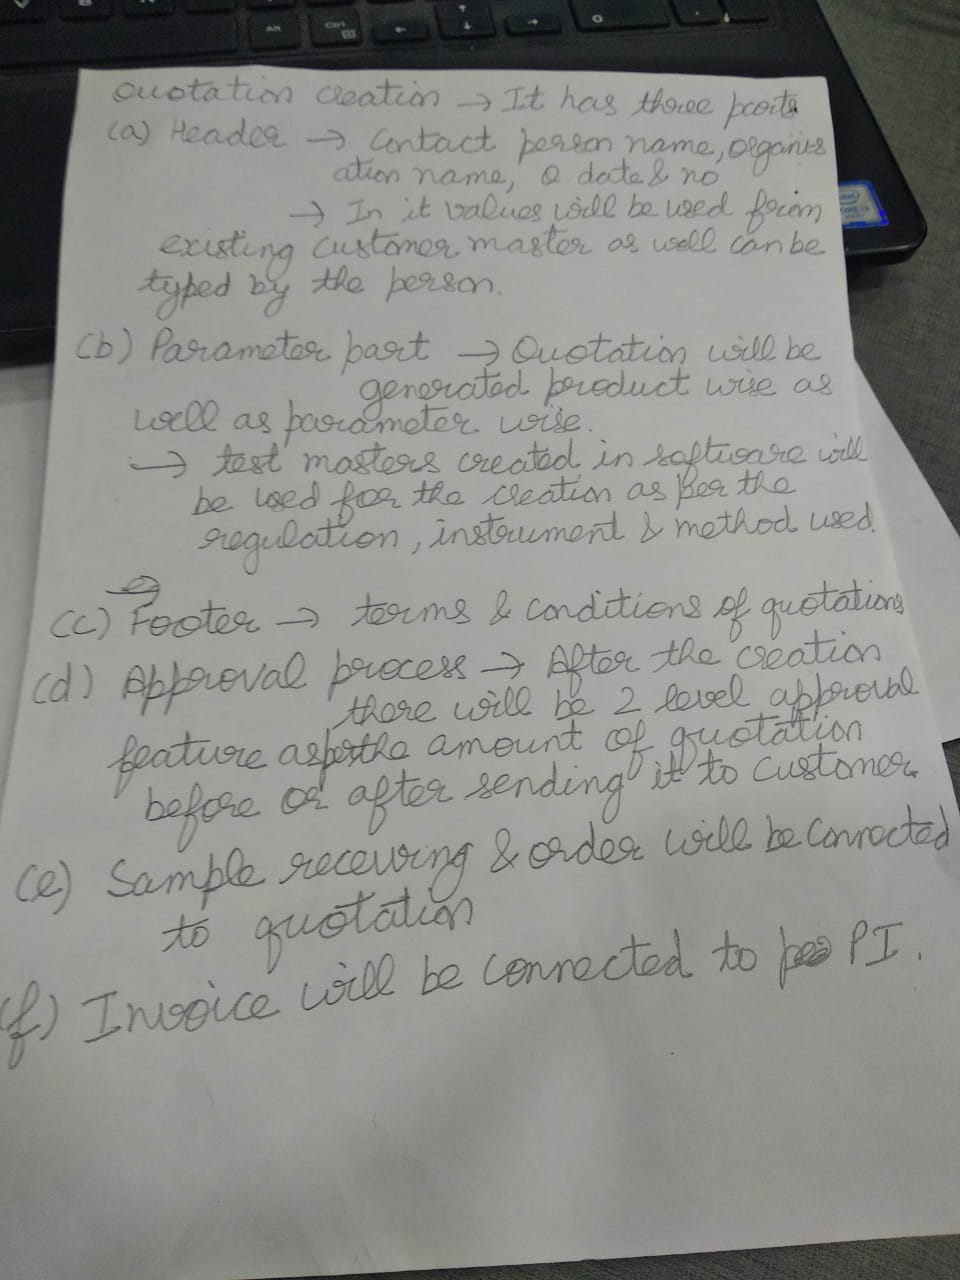 Alt
Ctrl
Quotation creation → It has three parts
(a) Header → Contact person name, organis
ation name, Q. date & no
→ In it values will be used from
existing customer master as well can be
typed by the person.
(b) Parameter part → Quotation will be
generated product wise as
well as parameter wise.
→ test masters created in software will
be used for the creation as per the
regulation, instrument & method used.
(c) Footer → terms & conditions of quotations
(d) Approval process → After the creation
there will be 2 level approval
feature as per the amount of quotation
before or after sending it to customer.
(e) Sample receiving & order will be connected
to quotation
(f) Invoice will be connected to PI.
intel
CORE i3